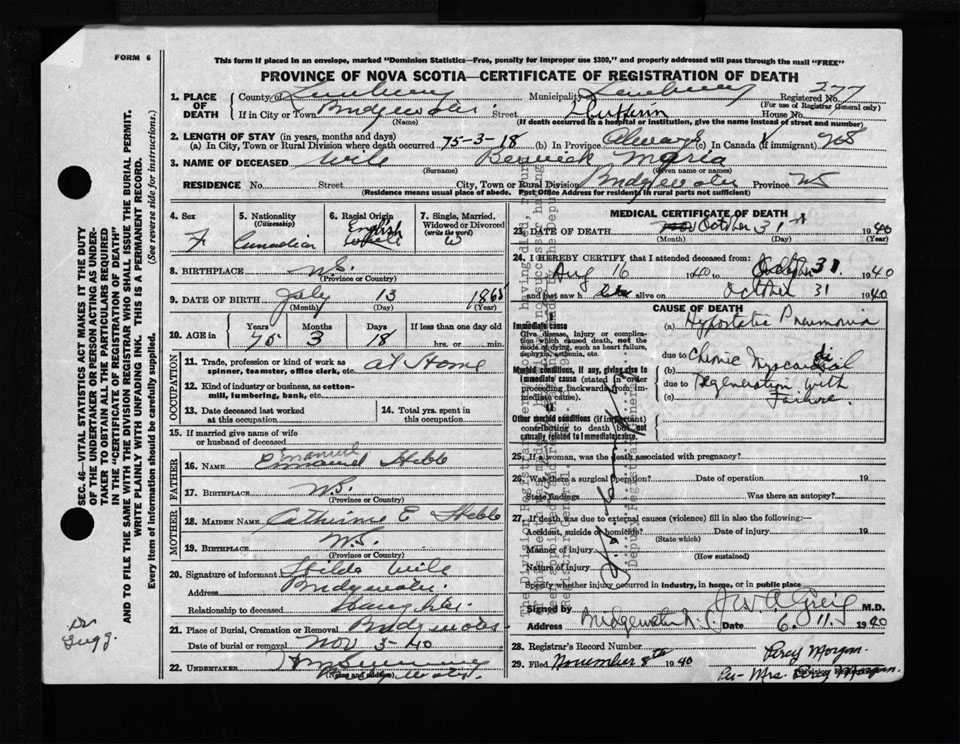 FORM 6
This form if placed in an envelope, marked "Dominion Statistics—Free, penalty for improper use $300," and properly addressed will pass through the mail "FREE"
PROVINCE OF NOVA SCOTIA—CERTIFICATE OF REGISTRATION OF DEATH
1. PLACE OF DEATH County of Lunenburg Municipality Lunenburg Registered No. 277
(For use of Registrar General only)
If in City or Town Bridgewater Street Dufferin House No.
(Name) (If death occurred in a hospital or institution, give the name instead of street and number)
2. LENGTH OF STAY (in years, months and days)
(a) In City, Town or Rural Division where death occurred 75-3-18 (b) In Province Always (c) In Canada (if immigrant)
3. NAME OF DECEASED Wile Maria
(Surname) (Given name or names)
RESIDENCE No. Street City, Town or Rural Division Bridgewater Province NS
(Residence means usual place of abode. Post Office Address for residents in rural parts not sufficient)
4. Sex F
5. Nationality (Citizenship) Canadian
6. Racial Origin English White
7. Single, Married, Widowed or Divorced (write the word) W
8. BIRTHPLACE N.S.
(Province or Country)
9. DATE OF BIRTH July 13 1865
(Month) (Day) (Year)
10. AGE in Years 75 Months 3 Days 18 If less than one day old hrs. or min.
OCCUPATION
11. Trade, profession or kind of work as spinner, teamster, office clerk, etc. at Home
12. Kind of industry or business, as cotton-mill, lumbering, bank, etc.
13. Date deceased last worked at this occupation
14. Total yrs. spent in this occupation
15. If married give name of wife or husband of deceased
FATHER
16. NAME Emanuel Hebb
17. BIRTHPLACE N.S.
(Province or Country)
MOTHER
18. MAIDEN NAME Catherine E Hebb
19. BIRTHPLACE N.S.
(Province or Country)
20. Signature of informant Hilda Wile
Address Bridgewater
Relationship to deceased Daughter
21. Place of Burial, Cremation or Removal Bridgewater
Date of burial or removal Nov 3-40
22. UNDERTAKER
(Name and address)
MEDICAL CERTIFICATE OF DEATH
23. DATE OF DEATH October 31 1940
(Month) (Day) (Year)
24. I HEREBY CERTIFY that I attended deceased from:
Aug 16 1940 to October 31, 1940
and last saw h er alive on October 31 1940
CAUSE OF DEATH
Immediate cause
Give disease, injury or complication which caused death, not the mode of dying, such as heart failure, asphyxia, asthenia, etc.
(a) Hypostatic Pneumonia
Morbid conditions, if any, giving rise to immediate cause (stated in order proceeding backwards from immediate cause).
due to
(b) Chronic Myocardial
due to
(c) Degeneration with Failure.
Other morbid conditions (if important) contributing to death but not causally related to immediate cause.
25. If a woman, was the death associated with pregnancy?
26. Was there a surgical operation? Date of operation 19
State findings Was there an autopsy?
27. If death was due to external causes (violence) fill in also the following:—
Accident, suicide or homicide? Date of injury 19
(State which)
Manner of injury
(How sustained)
Nature of injury
Specify whether injury occurred in industry, in home, or in public place
Signed by J W A Greig M.D.
Address Bridgewater N.S. Date 6.11. 1940
28. Registrar's Record Number
29. Filed November 8th 1940 Percy Morgan.
Per- Mrs. Percy Morgan.
SEC. 46—VITAL STATISTICS ACT MAKES IT THE DUTY
OF THE UNDERTAKER OR PERSON ACTING AS UNDER-
TAKER TO OBTAIN ALL THE PARTICULARS REQUIRED
IN THE "CERTIFICATE OF REGISTRATION OF DEATH"
AND TO FILE THE SAME WITH THE DIVISION REGISTRAR WHO SHALL ISSUE THE BURIAL PERMIT.
WRITE PLAINLY WITH UNFADING INK. THIS IS A PERMANENT RECORD.
Every item of information should be carefully supplied. (See reverse side for instructions.)